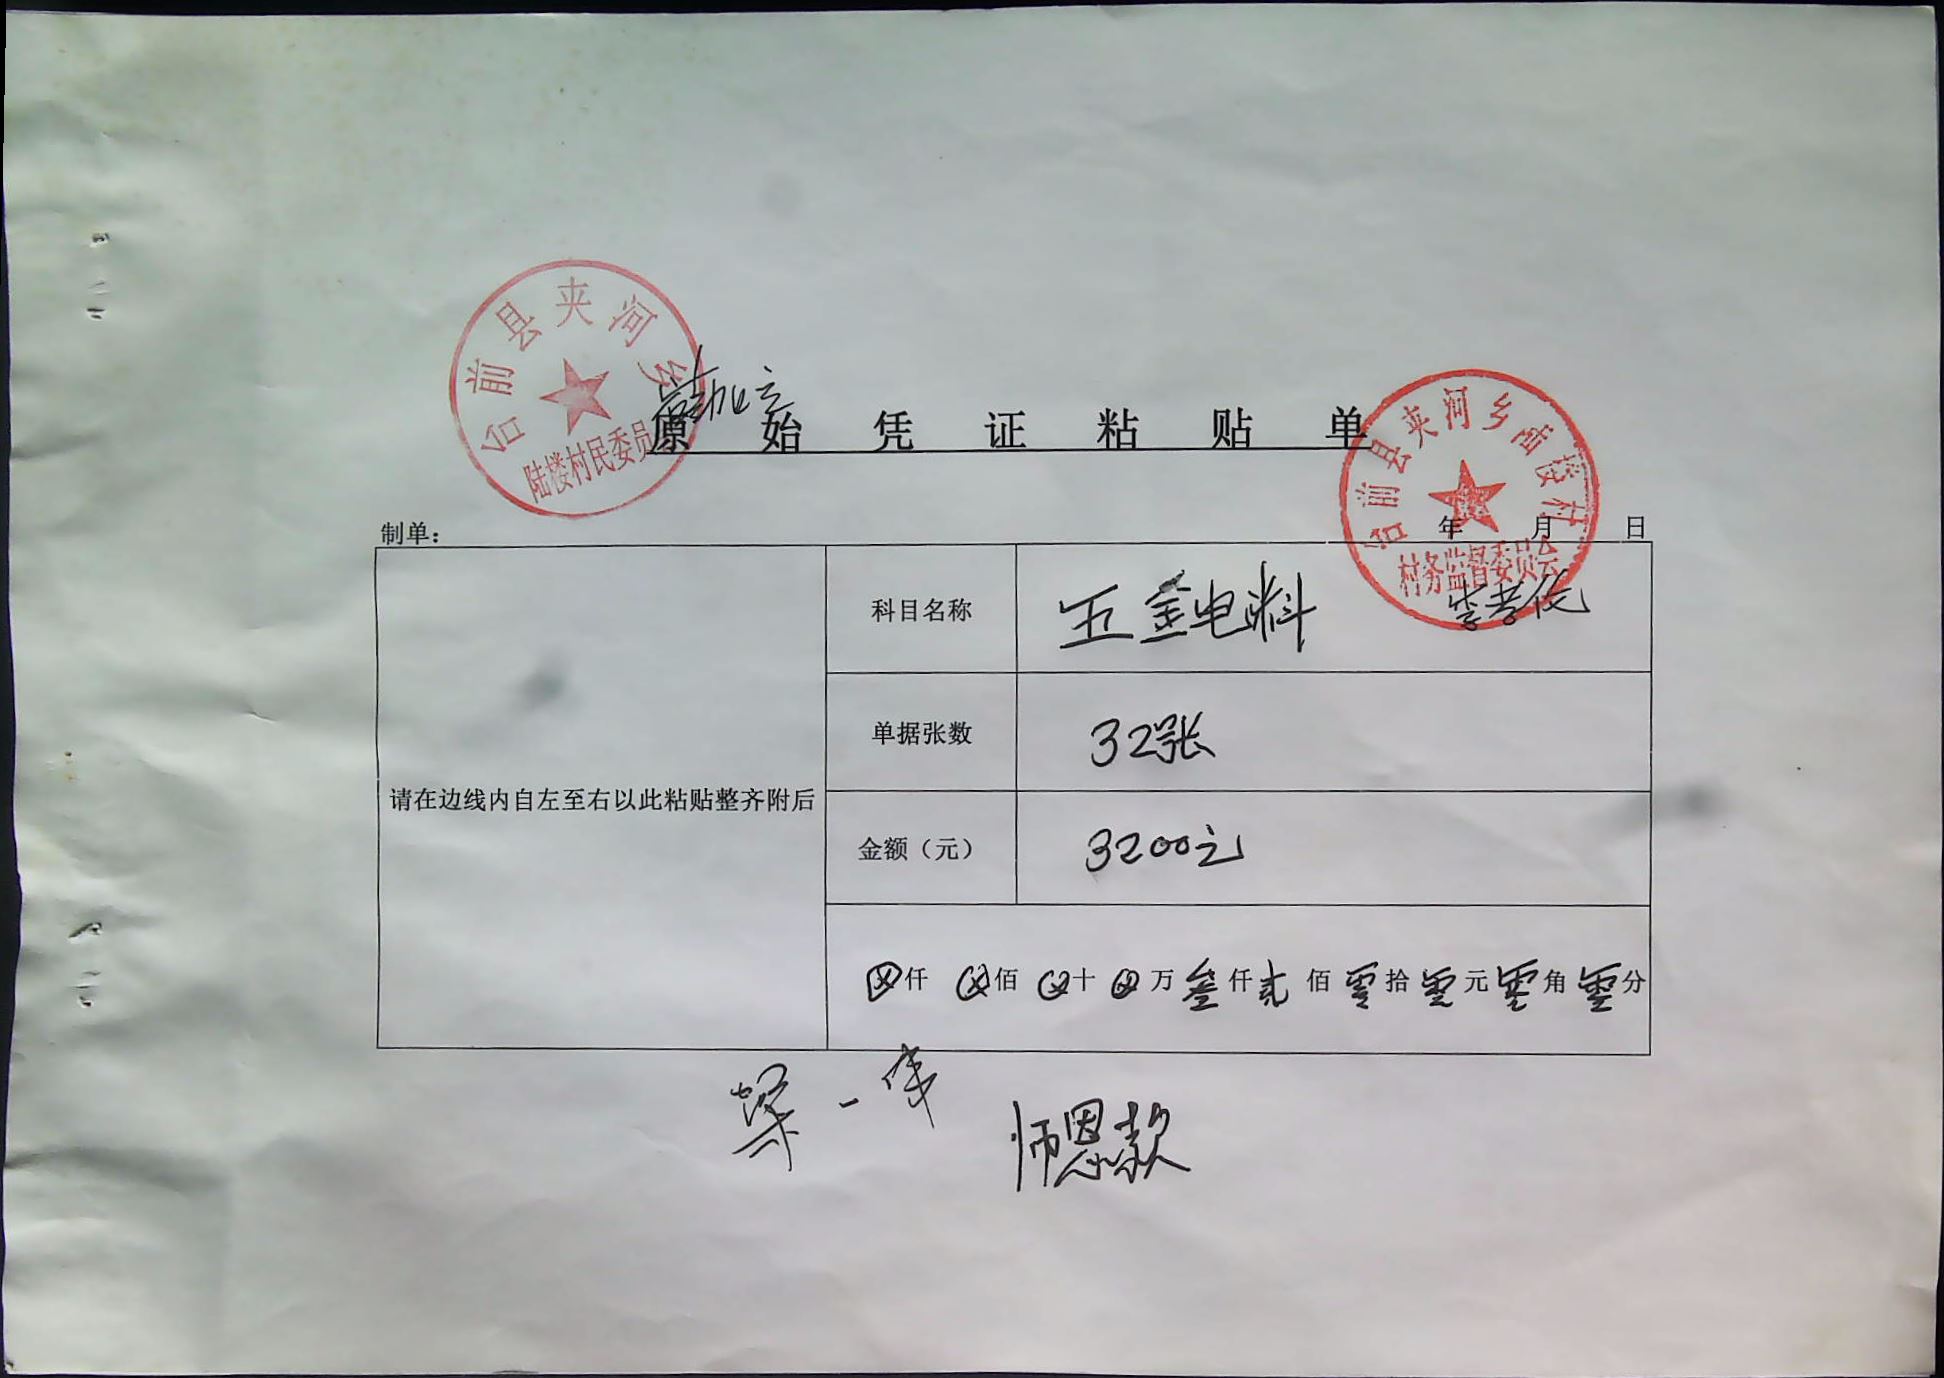 台前县夹河乡
陆楼村民委员
原始凭证粘贴单
台前县夹河乡陆楼村
村务监督委员会
制单：
年 月 日
科目名称 五金电料
单据张数 32张
请在边线内自左至右以此粘贴整齐附后
金额（元） 3200元
仟 佰 十 万 叁仟贰佰零拾零元零角零分
师恩款